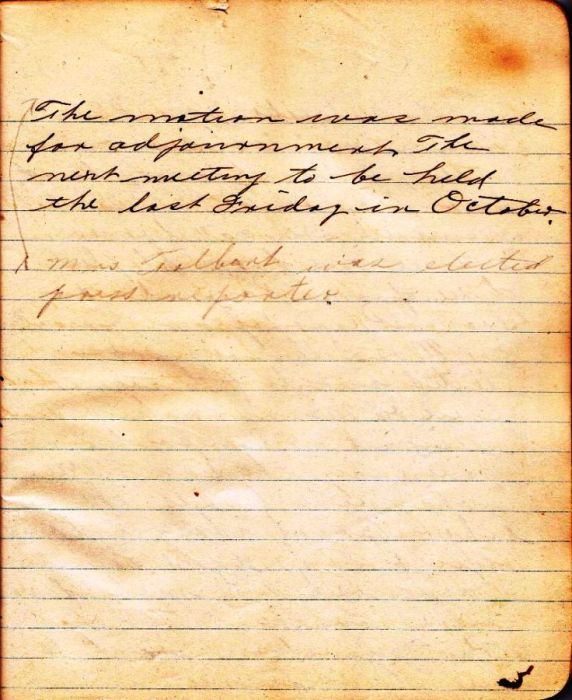 The motion was made
for adjournment. The
next meeting to be held
the last Friday in October.
Mrs Talbert was elected
press reporter